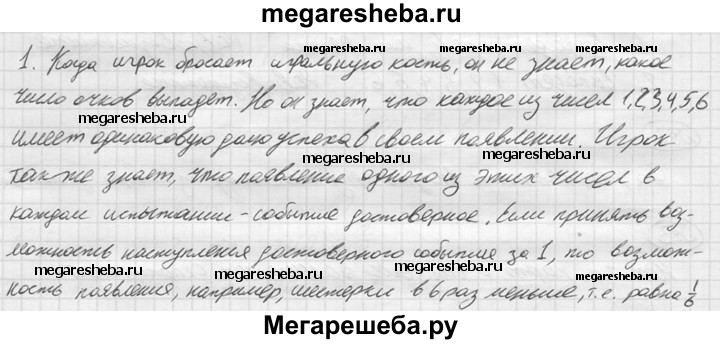 megaresheba.ru
megaresheba.ru megaresheba.ru megaresheba.ru
1. Когда игрок бросает игральную кость, он не знает, какое
число очков выпадет. Но он знает, что каждое из чисел 1,2,3,4,5,6
megaresheba.ru megaresheba.ru
имеет одинаковую долю успеха в своем появлении. Игрок
megaresheba.ru megaresheba.ru
так же знает, что появление одного из этих чисел в
megaresheba.ru megaresheba.ru
каждом испытании - событие достоверное. Если принять воз-
можность наступления достоверного события за 1, то возмож-
megaresheba.ru megaresheba.ru megaresheba.ru
ность появления, например, шестерки в 6 раз меньше, т.е. равна 1/6
Мегарешеба.ру